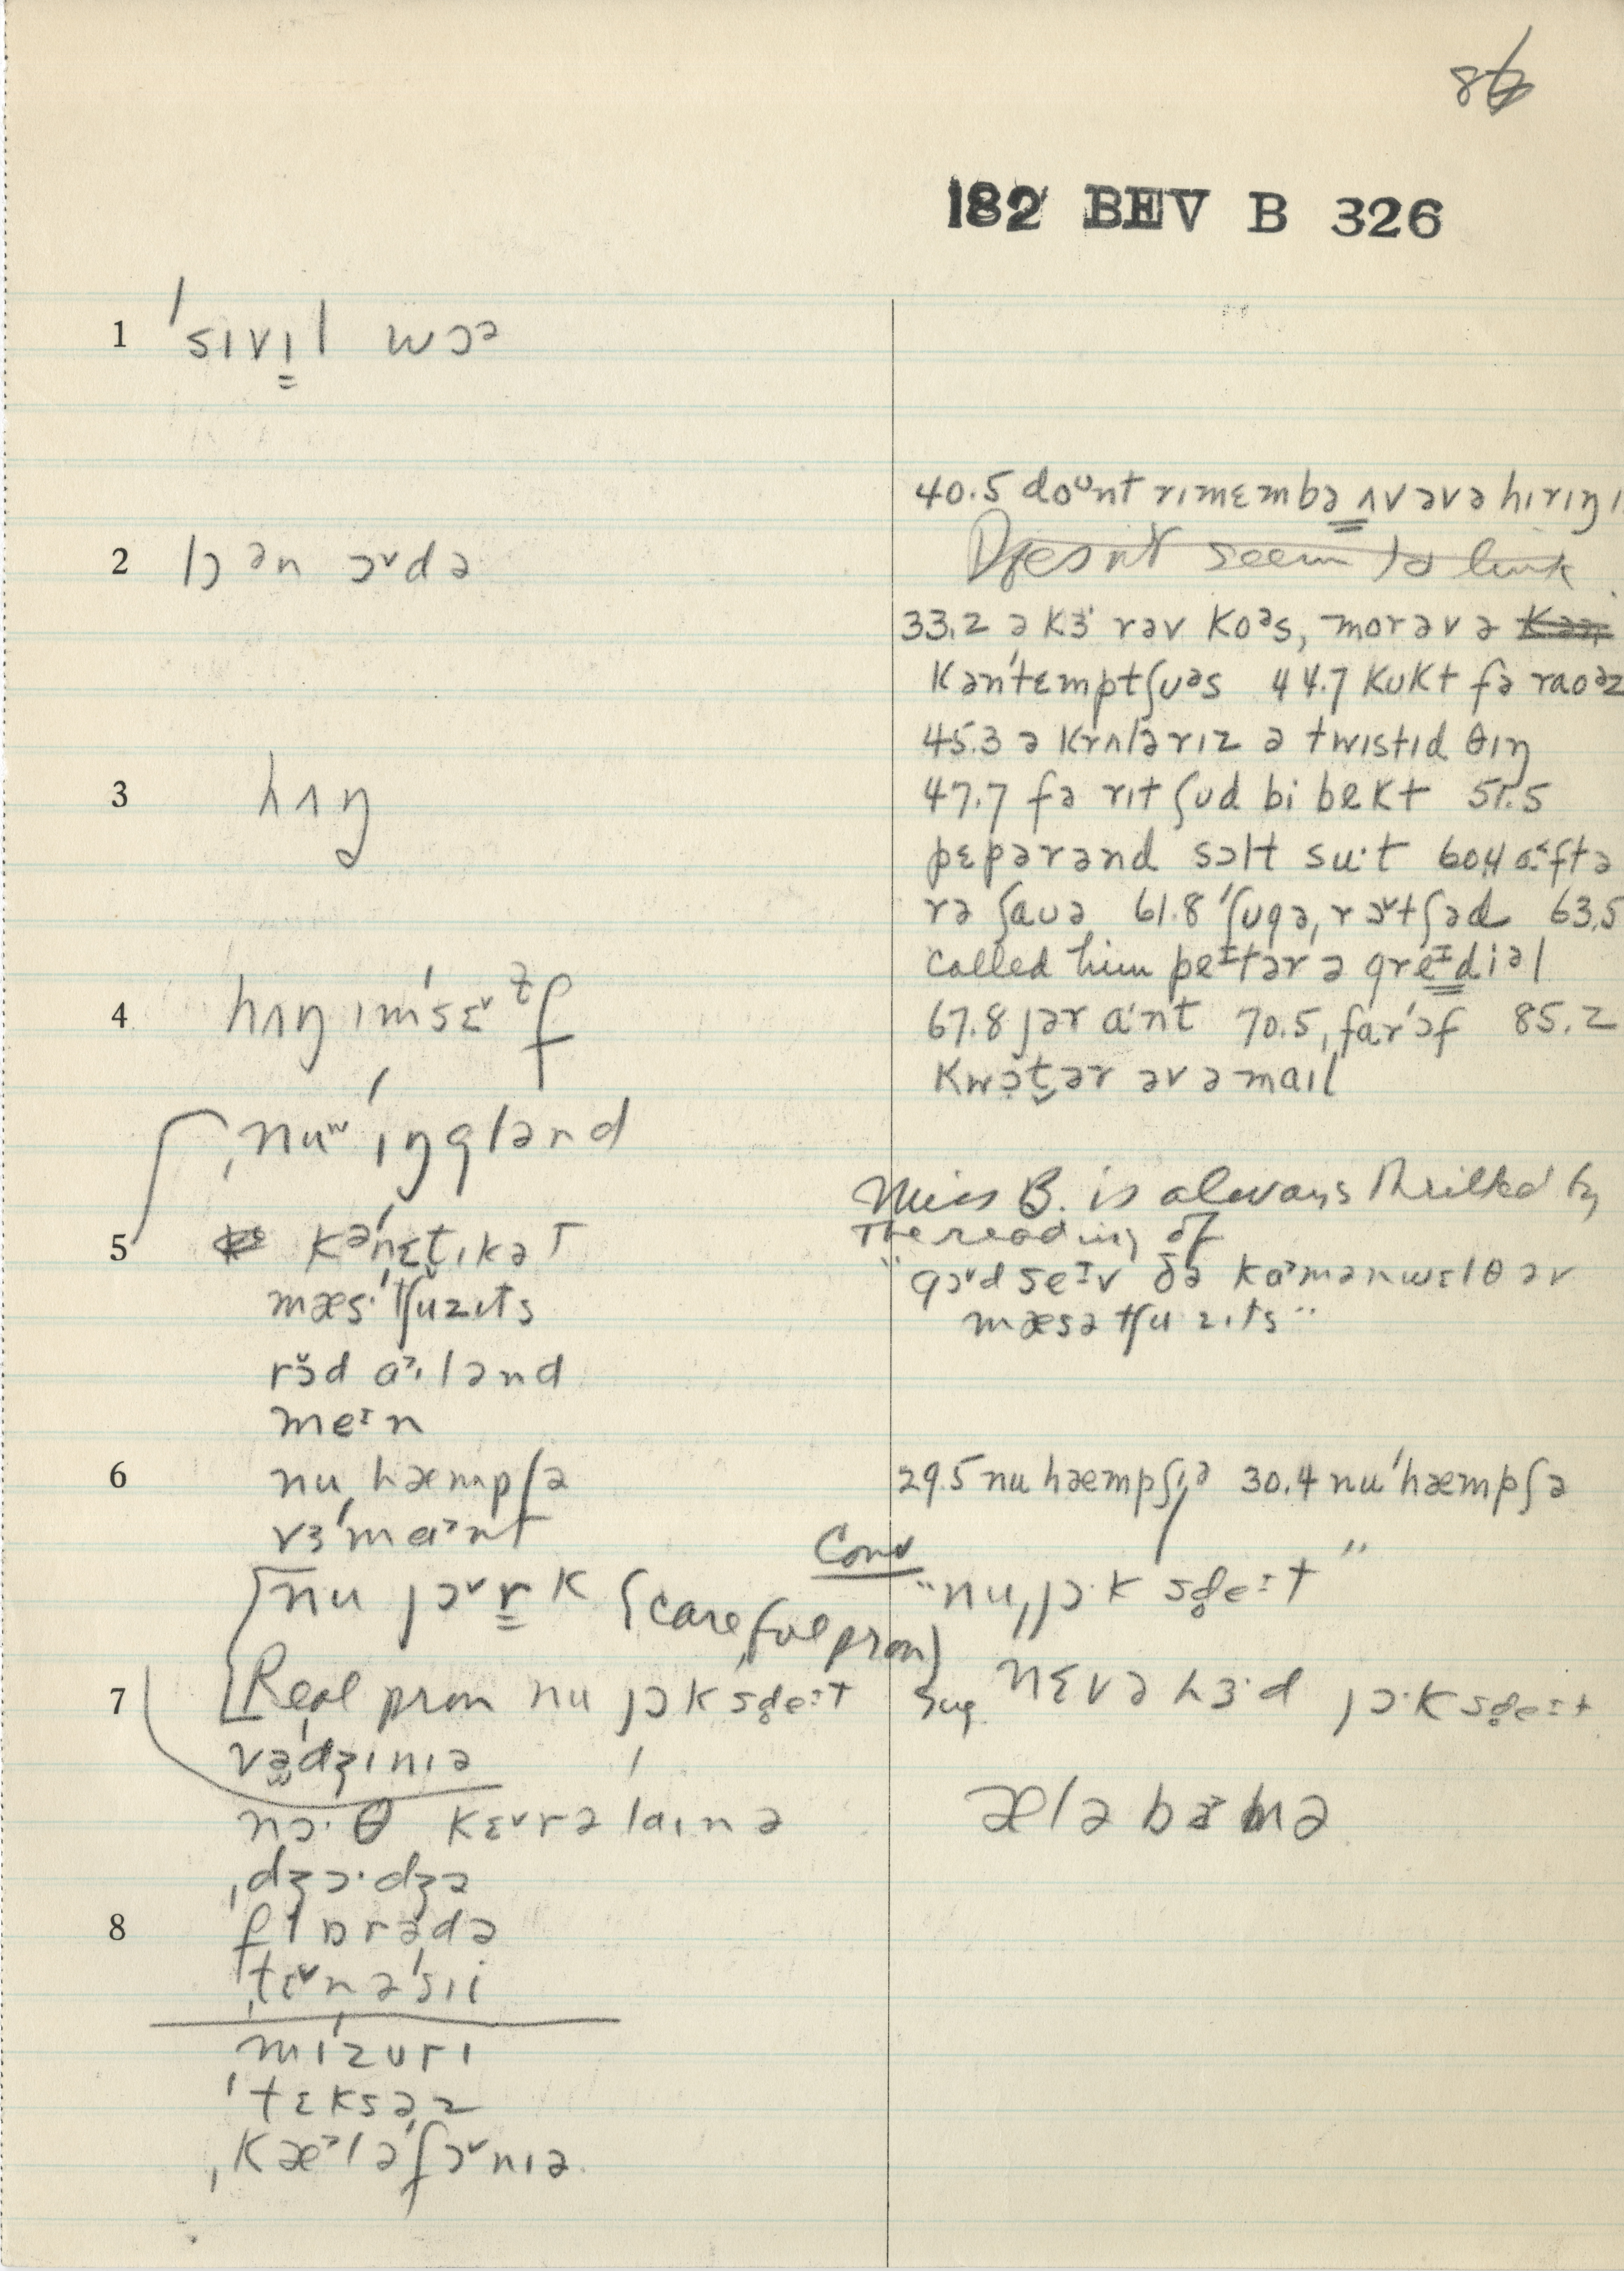 86
182 BEV B 326
1 ˈsɪvɪ̳l wɔə
2 lɔ ən ɔ˅də
3 hʌŋ
4 hʌŋ ɪmˈsɛ˅ɫf
ˌnuʷˈɪŋglənd
5 kəˈnɛt̬ɪkət
mæsˈtʃuzɪts
rɔ̆d aɪlənd
meɪn
6 nuˌhæmpʃə
vɜˈma˃nt
nu jɔ˅r̳k (careful pron)
7 Real pron nu jɔk sd̥eɪt
vədʒɪnɪə
nɔ·θ kɛ˅rəˈlaɪnə
ˌdʒɔ·dʒə
8 flɒrədə
ˌtɛ˅nəˈsɪi
mɪˈzurɪ
ˈtɛksəz
ˌkæ˃ləˈfɔ˅nɪə
40.5 doᶷnt rɪmɛmbə̳ ʌvəvə hɪrɪŋ
Doesn't seem to link
33.2 ə kɜ·rəv koᵊs, morəv ə
kənˈtɛmptʃuəs 44.7 kukt fə raoəz
45.3 ə krʌlərɪz ə twɪstɪd θɪŋ
47.7 fə rɪt ʃud bi bekt 51.5
pɛpərənd sɔlt su·t 60.4 a·˂ftə
rə ʃauə 61.8 ˈʃugə, rɔ˅tʃəd 63.5
called him peɪtər ə greɪdiəl
67.8 jər a·nt 70.5 ˌfarˈɔf 85.2
kwɔt̬ər əv ə maɪl
Miss B. is always thrilled by
the reading of
"gɔ˅d seɪv ðə ka˃mənwɛlθ əv
mæsətʃuzɪts"
29.5 nu hæmpʃɪə 30.4 nuˈhæmpʃə
Conv "nuˌjɔ·k sd̥eɪt"
Sug. nɛvə hɜ·d jɔ·k sd̥eɪt
æləbæ˃mə